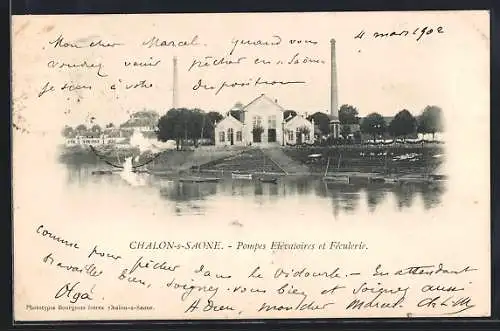 4 mars 1902
Mon cher Marcel quand vous
voudrez venir pêcher en Saone
je suis à votre disposition
CHALON-s-SAONE. - Pompes Élévatoires et Féculerie.
comme pour pêcher dans le Vidourle. - En attendant
travaillez bien, soignez-vous bien et soignez aussi
Olga
Adieu, mon cher Marcel,
Phototypie Bourgeois frères Chalon-s-Saône.